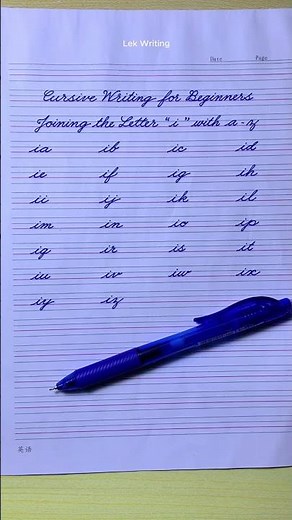 Lek Writing
Date Page
Cursive Writing for Beginners
Joining the Letter "i" with a-z
ia ib ic id
ie if ig ih
ii ij ik il
im in io ip
iq ir is it
iu iv iw ix
iy iz
英语